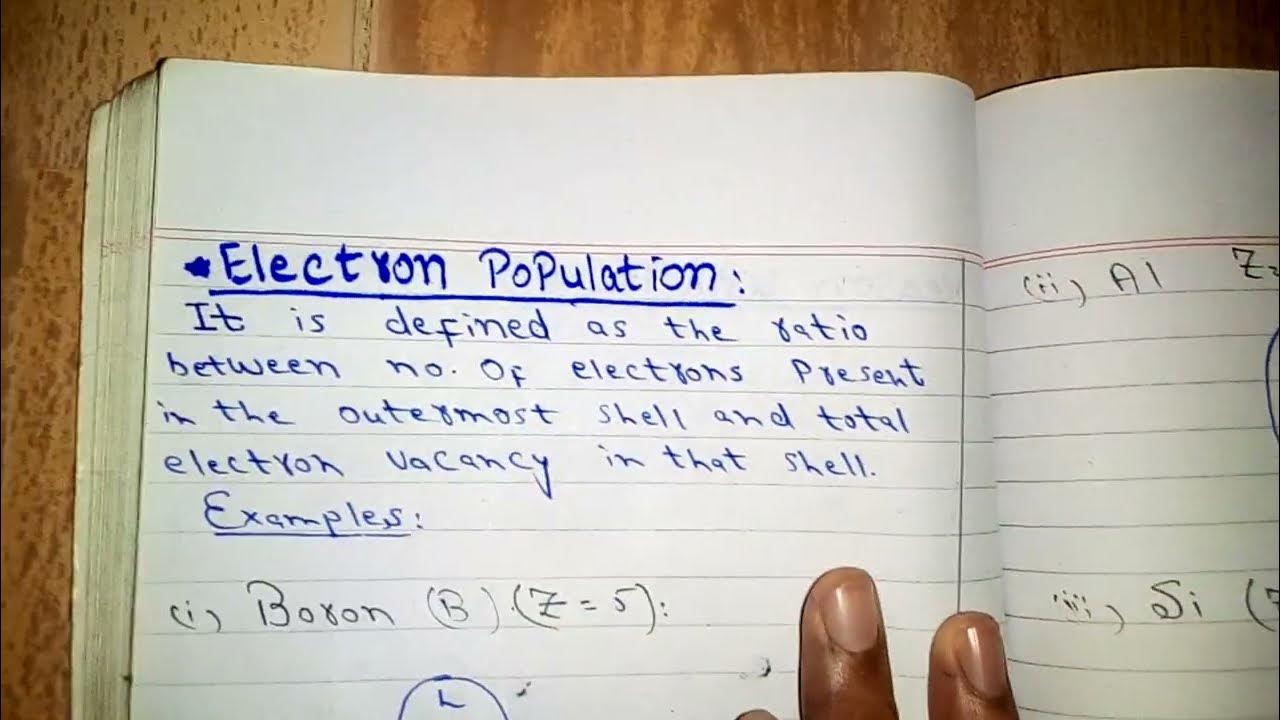 • Electron Population:
It is defined as the ratio
between no. of electrons Present
in the outermost shell and total
electron vacancy in that shell.
Examples:
(i) Boron (B) (Z = 5):
L
(ii) Al Z=
(iii) Si (Z